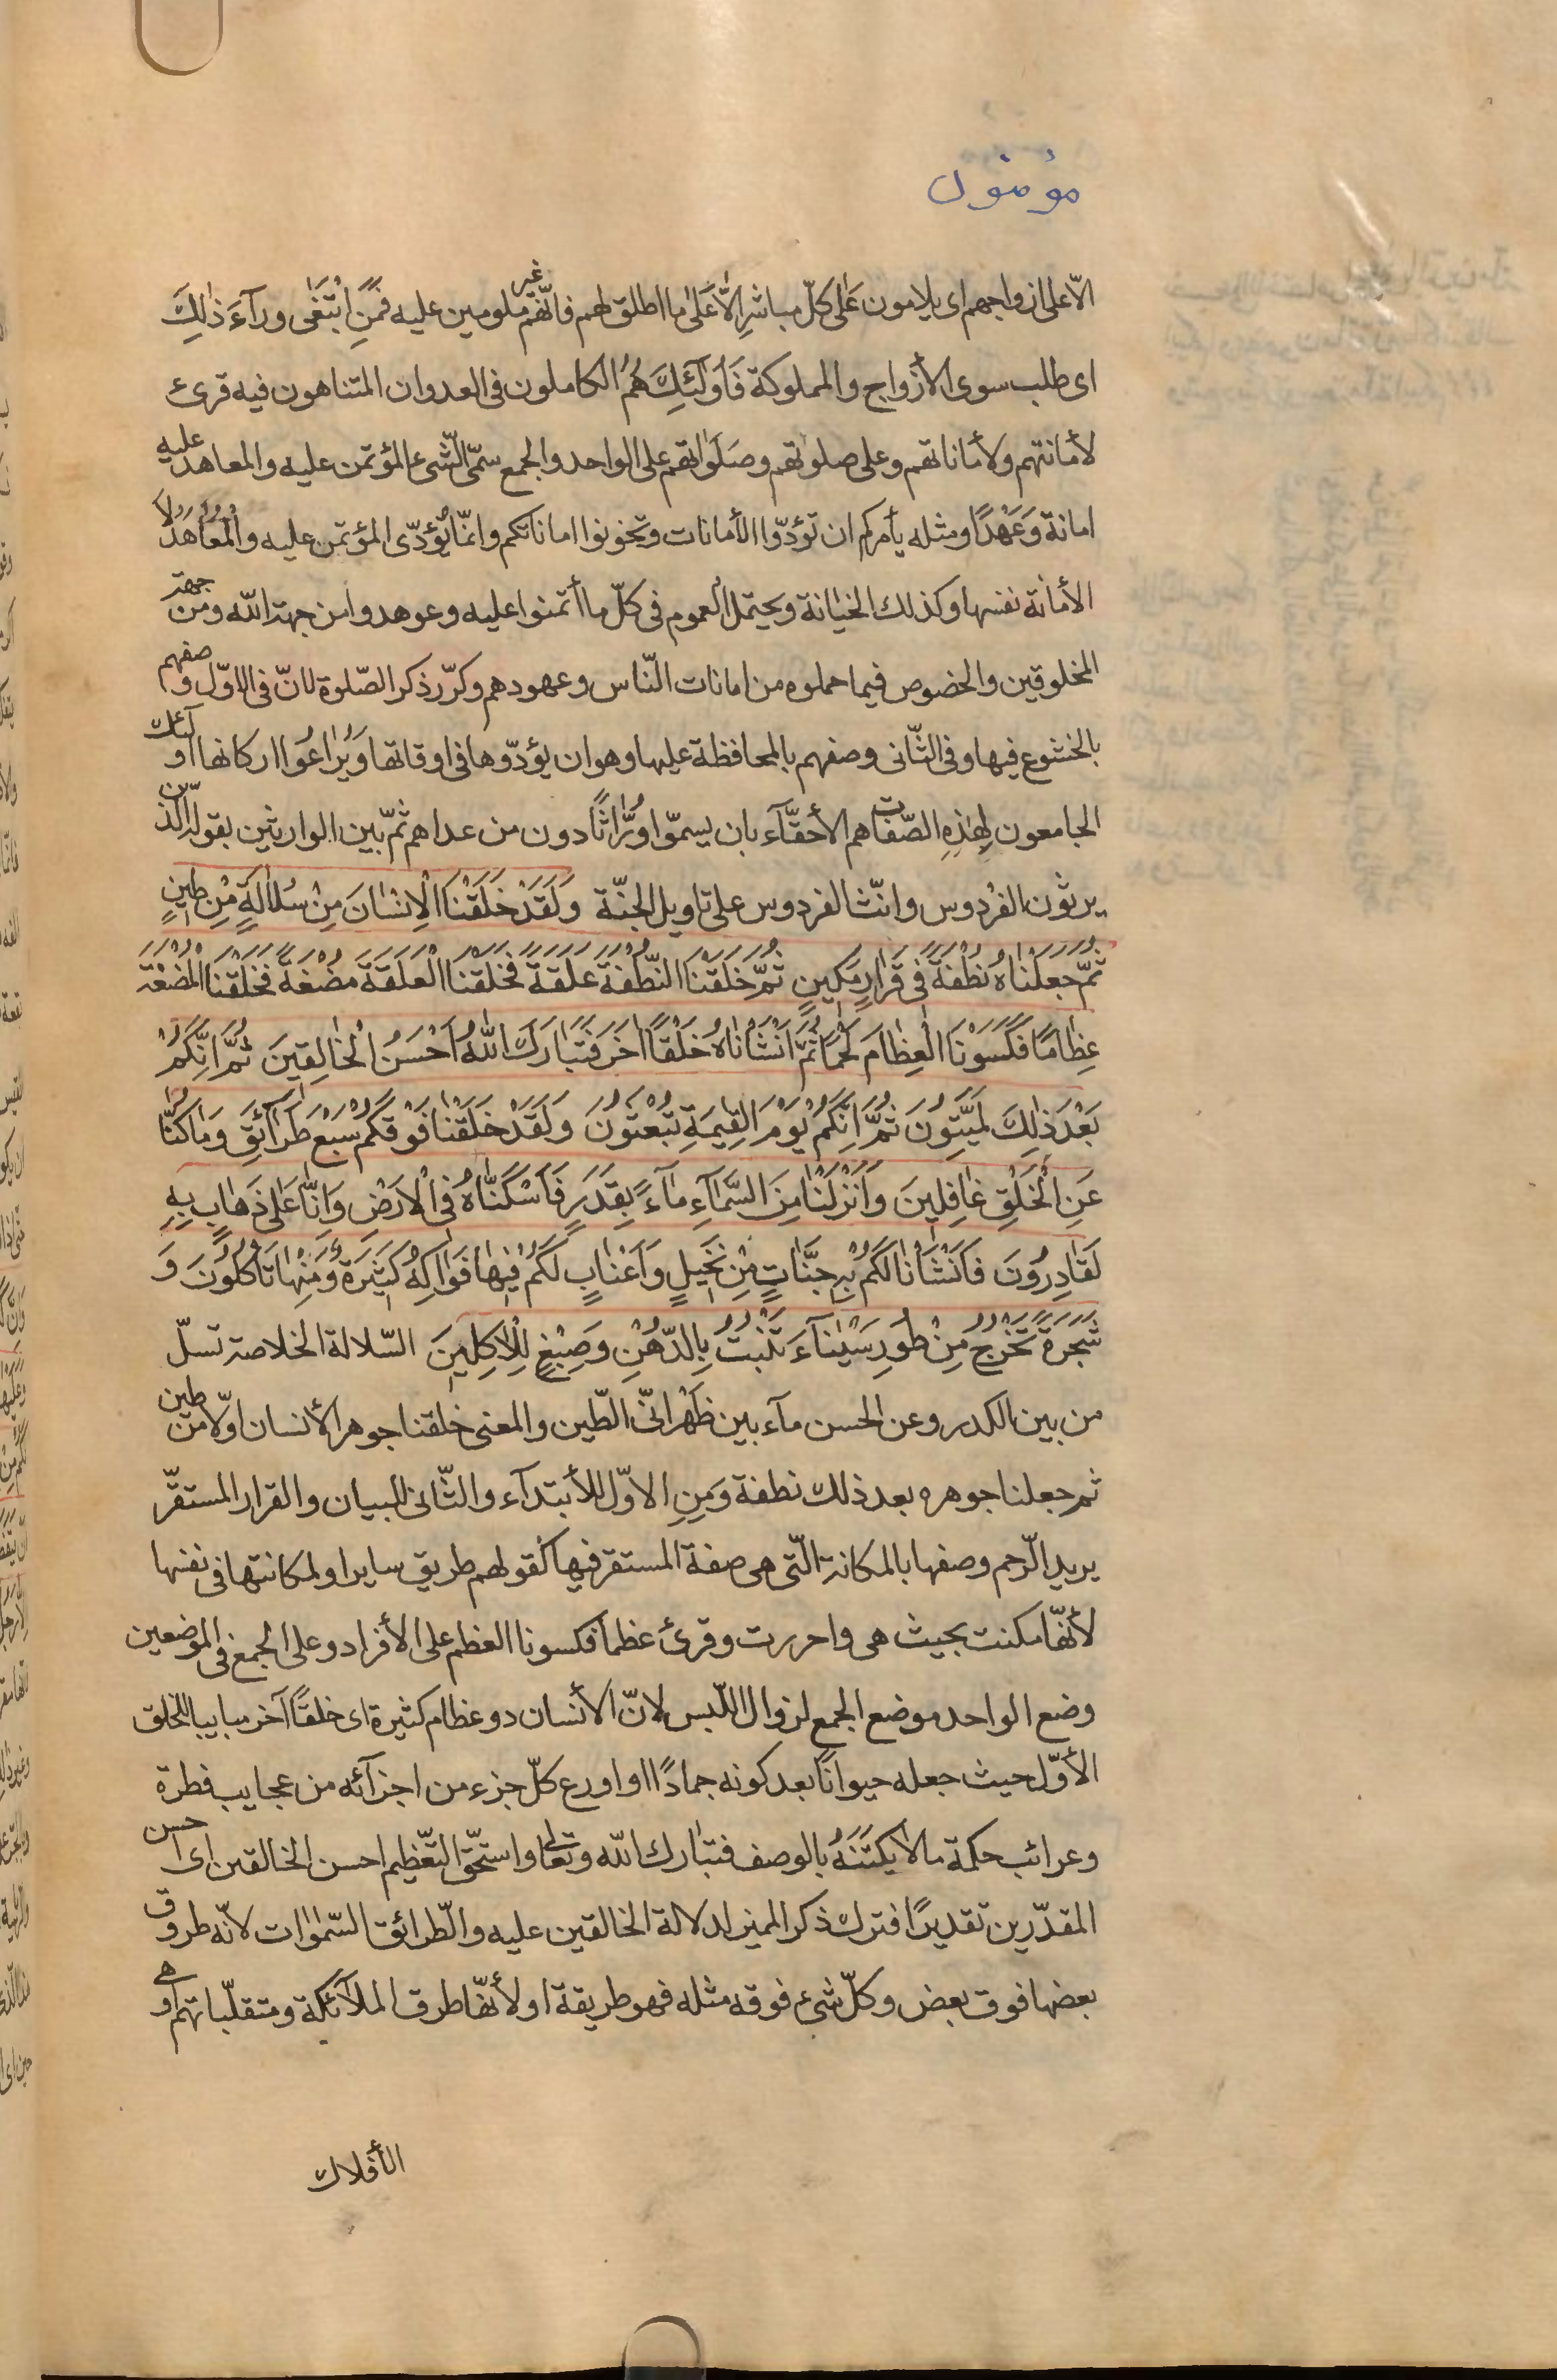 مؤمنون
الّا على ازواجهم اى يلامون عَلى كلّ مباشرٍ الّا عَلى ما اطلق لهم فانّهم غير ملومين عليه فَمَنِ ابْتَغٰى ورآءَ ذٰلِكَ
اى طلب سوى الأزواج والمملوكة فَاُولٰئِكَ هُمُ الكاملون فى العدوان المتناهون فيه قرئ
لأمانتهم ولأماناتهم وعلى صلوتهم وصَلَواتهم على الواحد والجمع سمّى الشّىء المؤتمن عليه والمعاهد عليه
امانة وَعَهْدًا ومثله يأمركم ان تؤدّوا الأمانات وتخونوا اماناتكم وانّما تُؤدّى المؤتمن عليه والْمُعَاهَدُ لا
الأمانة نفسها وكذلك الخيانة ويحتمل العموم فى كلّ ما أتمنوا عليه وعوهدوا من جهة الله ومن جهة
المخلوقين والخصوص فيما حملوه من امانات النّاس وعهودهم وكرّر ذكر الصّلوة لانّ فى الاوّل وصفهم
بالخشوع فيها وفى الثّانى وصفهم بالمحافظة عليها وهو ان يؤدّوها فى اوقاتها وَيُرٰاعُوا اركانها اولئك
الجامعون لِهٰذِهِ الصّفات هم الأحقّآء بان يسمّوا وُرّٰاثًا دون من عداهم ثمّ بّين الوارثين بقوله الّذين
يرثون الفرْدوس وانّث الفردوس على تاويل الجنّة وَلَقَدْ خَلَقْنَا الْاِنْسٰانَ مِنْ سُلاٰلَةٍ مِنْ طينٍ
ثُمَّ جَعَلْنٰاهُ نُطْفَةً فى قَرَارٍ مَكينٍ ثُمَّ خَلَقْنَا النُّطْفَةَ عَلَقَةً فَخَلَقْنَا الْعَلَقَةَ مُضْغَةً فَخَلَقْنَا الْمُضْغَةَ
عِظٰامًا فَكَسَوْنَا الْعِظٰامَ لَحْمًا ثُمَّ اَنْشَأْنٰاهُ خَلْقًا اٰخَرَ فَتَبٰارَكَ اللّٰهُ اَحْسَنُ الْخٰالِقينَ ثُمَّ اِنَّكُمْ
بَعْدَ ذٰلِكَ لَمَيِّتُونَ ثُمَّ اِنَّكُمْ يَوْمَ الْقِيٰمَةِ تُبْعَثُونَ وَلَقَدْ خَلَقْنٰا فَوْقَكُمْ سَبْعَ طَرٰآئِقَ وَمٰا كُنّٰا
عَنِ الْخَلْقِ غٰافِلينَ وَاَنْزَلْنٰا مِنَ السَّمٰآءِ مٰآءً بِقَدَرٍ فَاَسْكَنّٰاهُ فى الْاَرْضِ وَاِنّٰا عَلٰى ذَهٰابٍ بِهِ
لَقٰادِرُونَ فَاَنْشَاْنٰا لَكُمْ بِهِ جَنّٰاتٍ مِنْ نَخيلٍ وَاَعْنٰابٍ لَكُمْ فيهٰا فَوٰاكِهُ كَثيرَةٌ وَمِنْهٰا تَاْكُلُونَ وَ
شَجَرَةً تَخْرُجُ مِنْ طُورِ سَيْنٰآءَ تَنْبُتُ بِالدُّهْنِ وَصِبْغٍ لِلْاٰكِلينَ السّلالة الخلاصة تسلّ
من بين الكدر وعن الحسن مآء بين ظَهْرانىّ الطّين والمعنى خلقنا جوهر الأنسان اوّلا من طين
ثم جعلنا جوهره بعد ذلك نطفة وَمِنِ الاوّل للأبتدآء والثّانى للبيان والقرار المستقرّ
يريد الرّحم وصفها بالمكانة الّتى هى صفة المستقر فيها كقولهم طريق ساير او لمكانتها فى نفسها
لأنّها مكنت بحيث هى واحررت وقرئ عظماً فكسونا العظم على الأفراد وعلى الجمع فى الموضعين
وضع الواحد موضع الجمع لزوال اللّبس لانّ الأنسان ذو عظام كثيرة اى خلقًا آخر مباينا للخلق
الأوّل حيث جعله حيوانًا بعد كونه جمادًا او اودع كلّ جزء من اجزآئه من عجايب فطرة
وغرائب حكمة ما لا يكتَنَهُ بالوصف فتبٰارك اللّه وتعالى واستحّق التّعظيم احسن الخالقين اى احسن
المقدّرين تقديرًا فترك ذكر المميز لدلالة الخالقين عليه والطّرائق السّمٰوٰات لانّه طروق
بعضها فوق بعض وكلّ شىء فوقه مثله فهو طريقة او لأنّها طرق الملآئكة ومتقلّباتهم او هى
الأفلاك